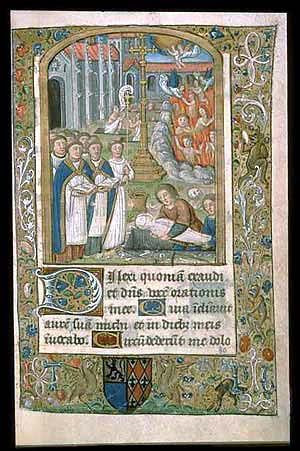 Dilexi quoniā exaudi
et dn̄s vocē orationis
mee. Quia inclinavit
aurē suā michi et in diebꝰ meis
invocabo. Circūdederūt me dolo